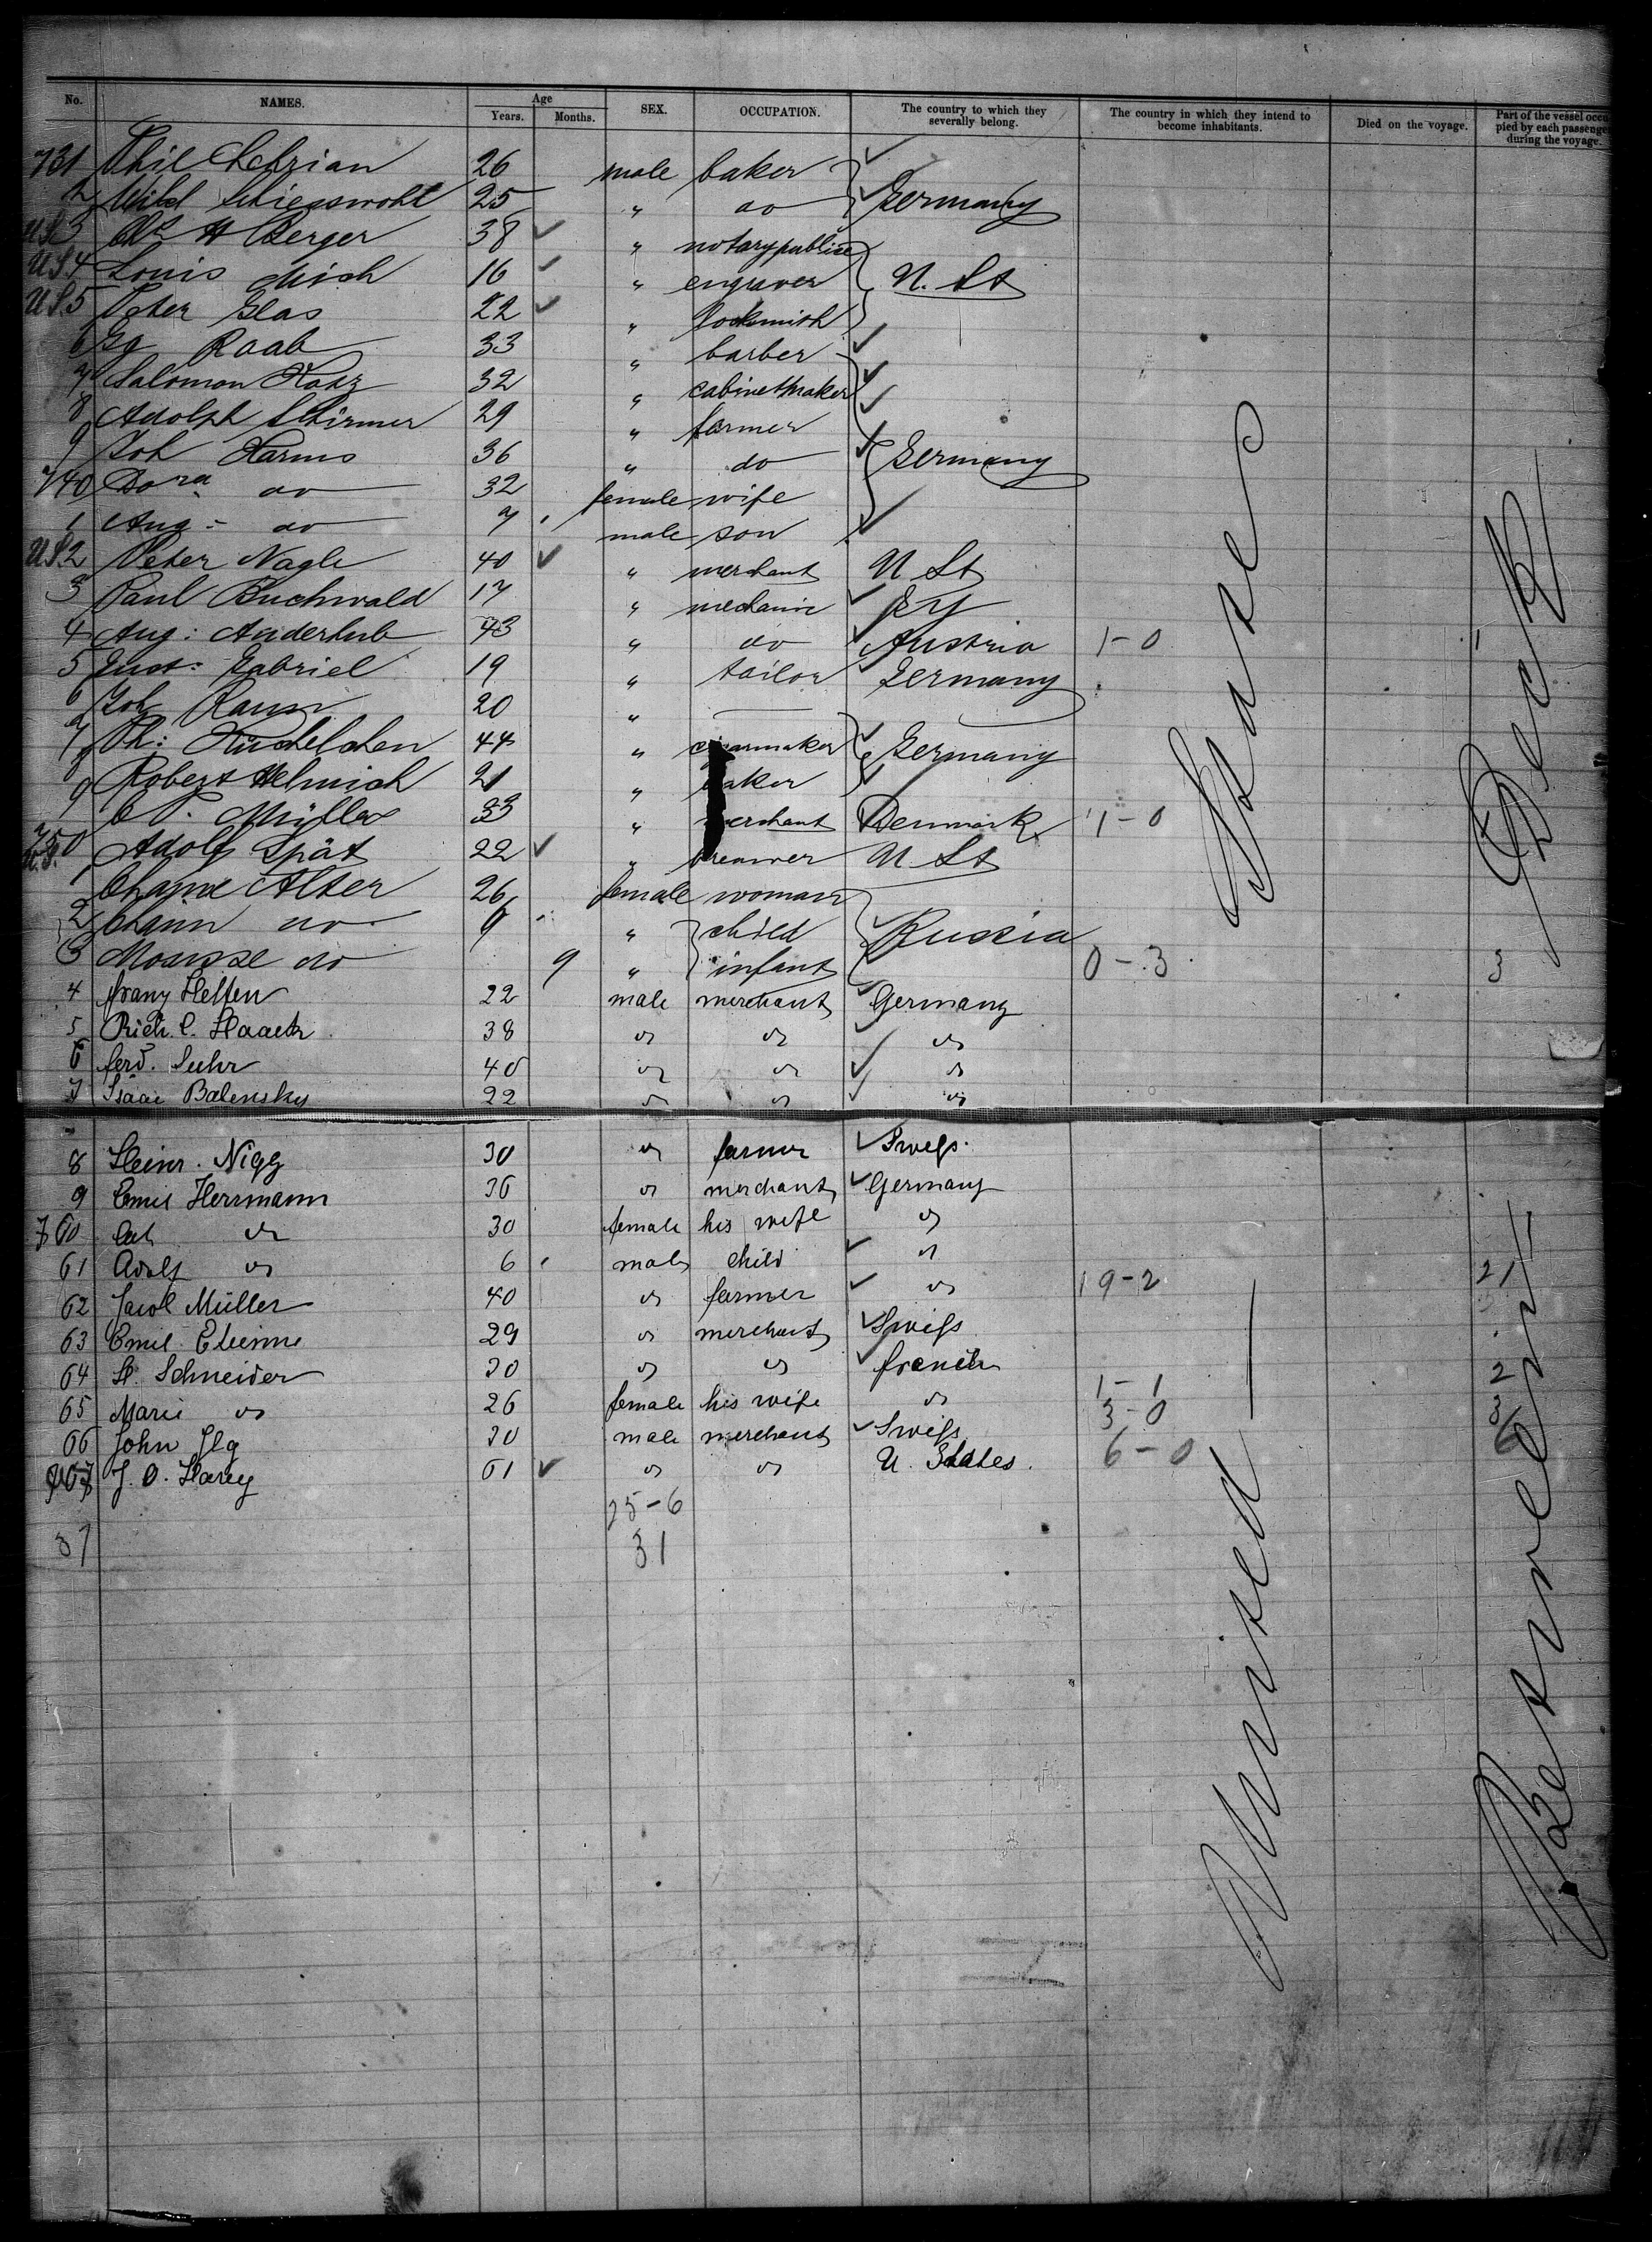 No. NAMES. Age Years. Months. SEX. OCCUPATION. The country to which they severally belong. The country in which they intend to become inhabitants. Died on the voyage. Part of the vessel occupied by each passenger during the voyage.
731 Phil 26 male baker
2 25 " do Germany
U.S. 3 H Berger 38 " notary publice
U.S. 4 Louis Misch 16 " engraver U. St
U.S. 5 Peter Glas 22 " locksmith
6 Gg Raab 33 " barber
7 Salomon Katz 32 " cabinetmaker
8 Adolph Schirmer 29 " farmer
9 Joh Harms 36 " do Germany
740 Dora do 32 female wife
1 Aug: do 7 male son
U.S. 2 Peter Nagle 40 " merchant U St
3 Paul Buchwald 17 " mechanic Gy
4 Aug: Anderhub 43 " do Austria 1-0 1
5 Gust: Gabriel 19 " tailor Germany
6 Joh 20 "
7 Ph: Küchelchen 44 " cigarmaker Germany
8 Robert Helmich 21 " baker
9 C P. Müller 33 " merchant Denmark 1-0
750 U.S. Adolf Spät 22 " brewer U St
1 Alter 26 female woman
2 do 9 " child Russia
3 do 9 " infant 0-3 3
4 Franz Helfen 22 male merchant Germany
5 Rich. C. Haack 38 do do do
6 Ferd. Suhr 40 do do do
7 Isaac Balensky 22 do do do
8 Heinr. Nigg 30 do farmer Swiss.
9 Emil Herrmann 36 do merchant Germany
760 Cath do 30 female his wife do
61 Adolf do 6 male child do
62 Jacob Müller 40 do farmer do 19-2 21
63 Emil Etienne 29 do merchant Swiss
64 H. Schneider 30 do do French 2
65 Marie do 26 female his wife do 1-1
66 John Ilg 30 male merchant Swiss 3-0 3
767 J. O. Harry 61 do do U. States. 6-0 6
25-6
37 31
United States
Between Deck